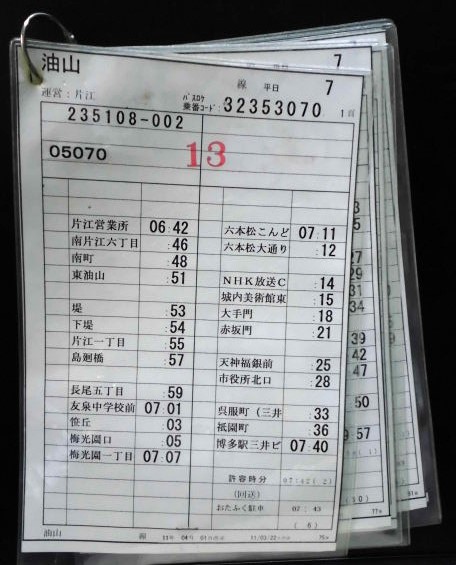 油山
線 平日 7
7
運営:片江
バスロケ
乗番コード: 32353070 1頁
235108-002
05070
13
片江営業所 06:42
南片江六丁目 :46
南町 :48
東油山 :51
堤 :53
下堤 :54
片江一丁目 :55
島廻橋 :57
長尾五丁目 :59
友泉中学校前 07:01
笹丘 :03
梅光園口 :05
梅光園一丁目 07:07
六本松こんど 07:11
六本松大通り :12
NHK放送C :14
城内美術館東 :15
大手門 :18
赤坂門 :21
天神福銀前 :25
市役所北口 :28
呉服町(三井 :33
祇園町 :36
博多駅三井ビ 07:40
許容時分 07:42(2)
(回送)
おたふく駐車 07:43
(6)
油山 線
27
29
31
34
39
42
47
50
:57